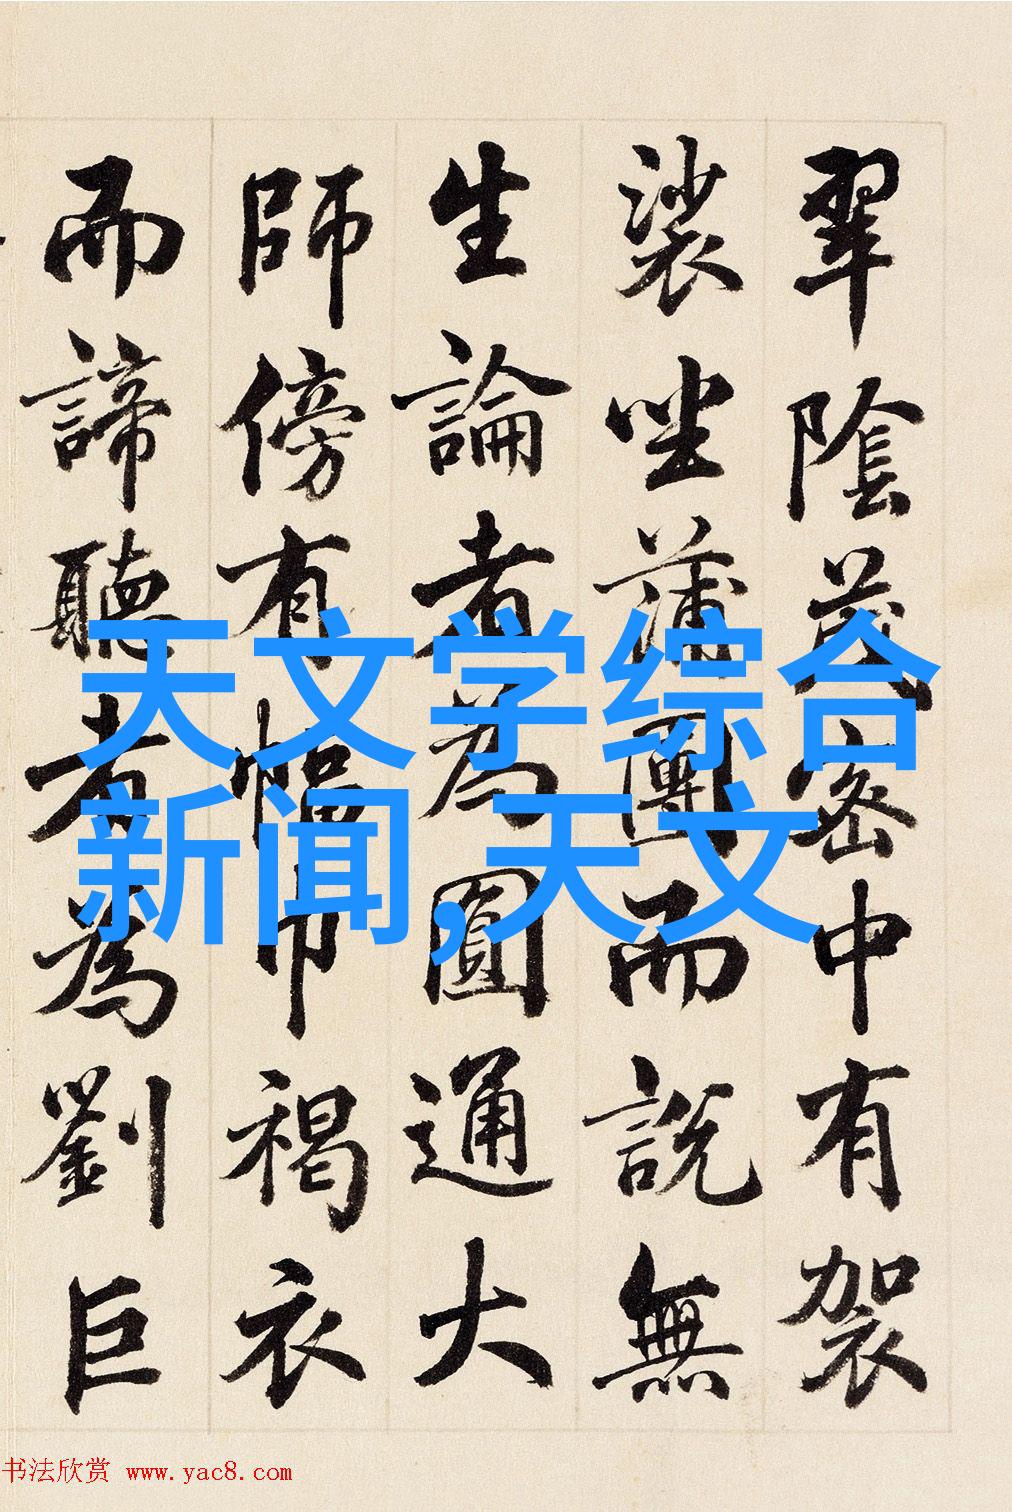 翠陰茂密中有袈
裟坐蒲團而說無
生論者為圓通大
師傍有幅巾褐衣
而諦聽者為劉巨
天文学综合
新闻,天文
书法欣赏 www.yac8.com